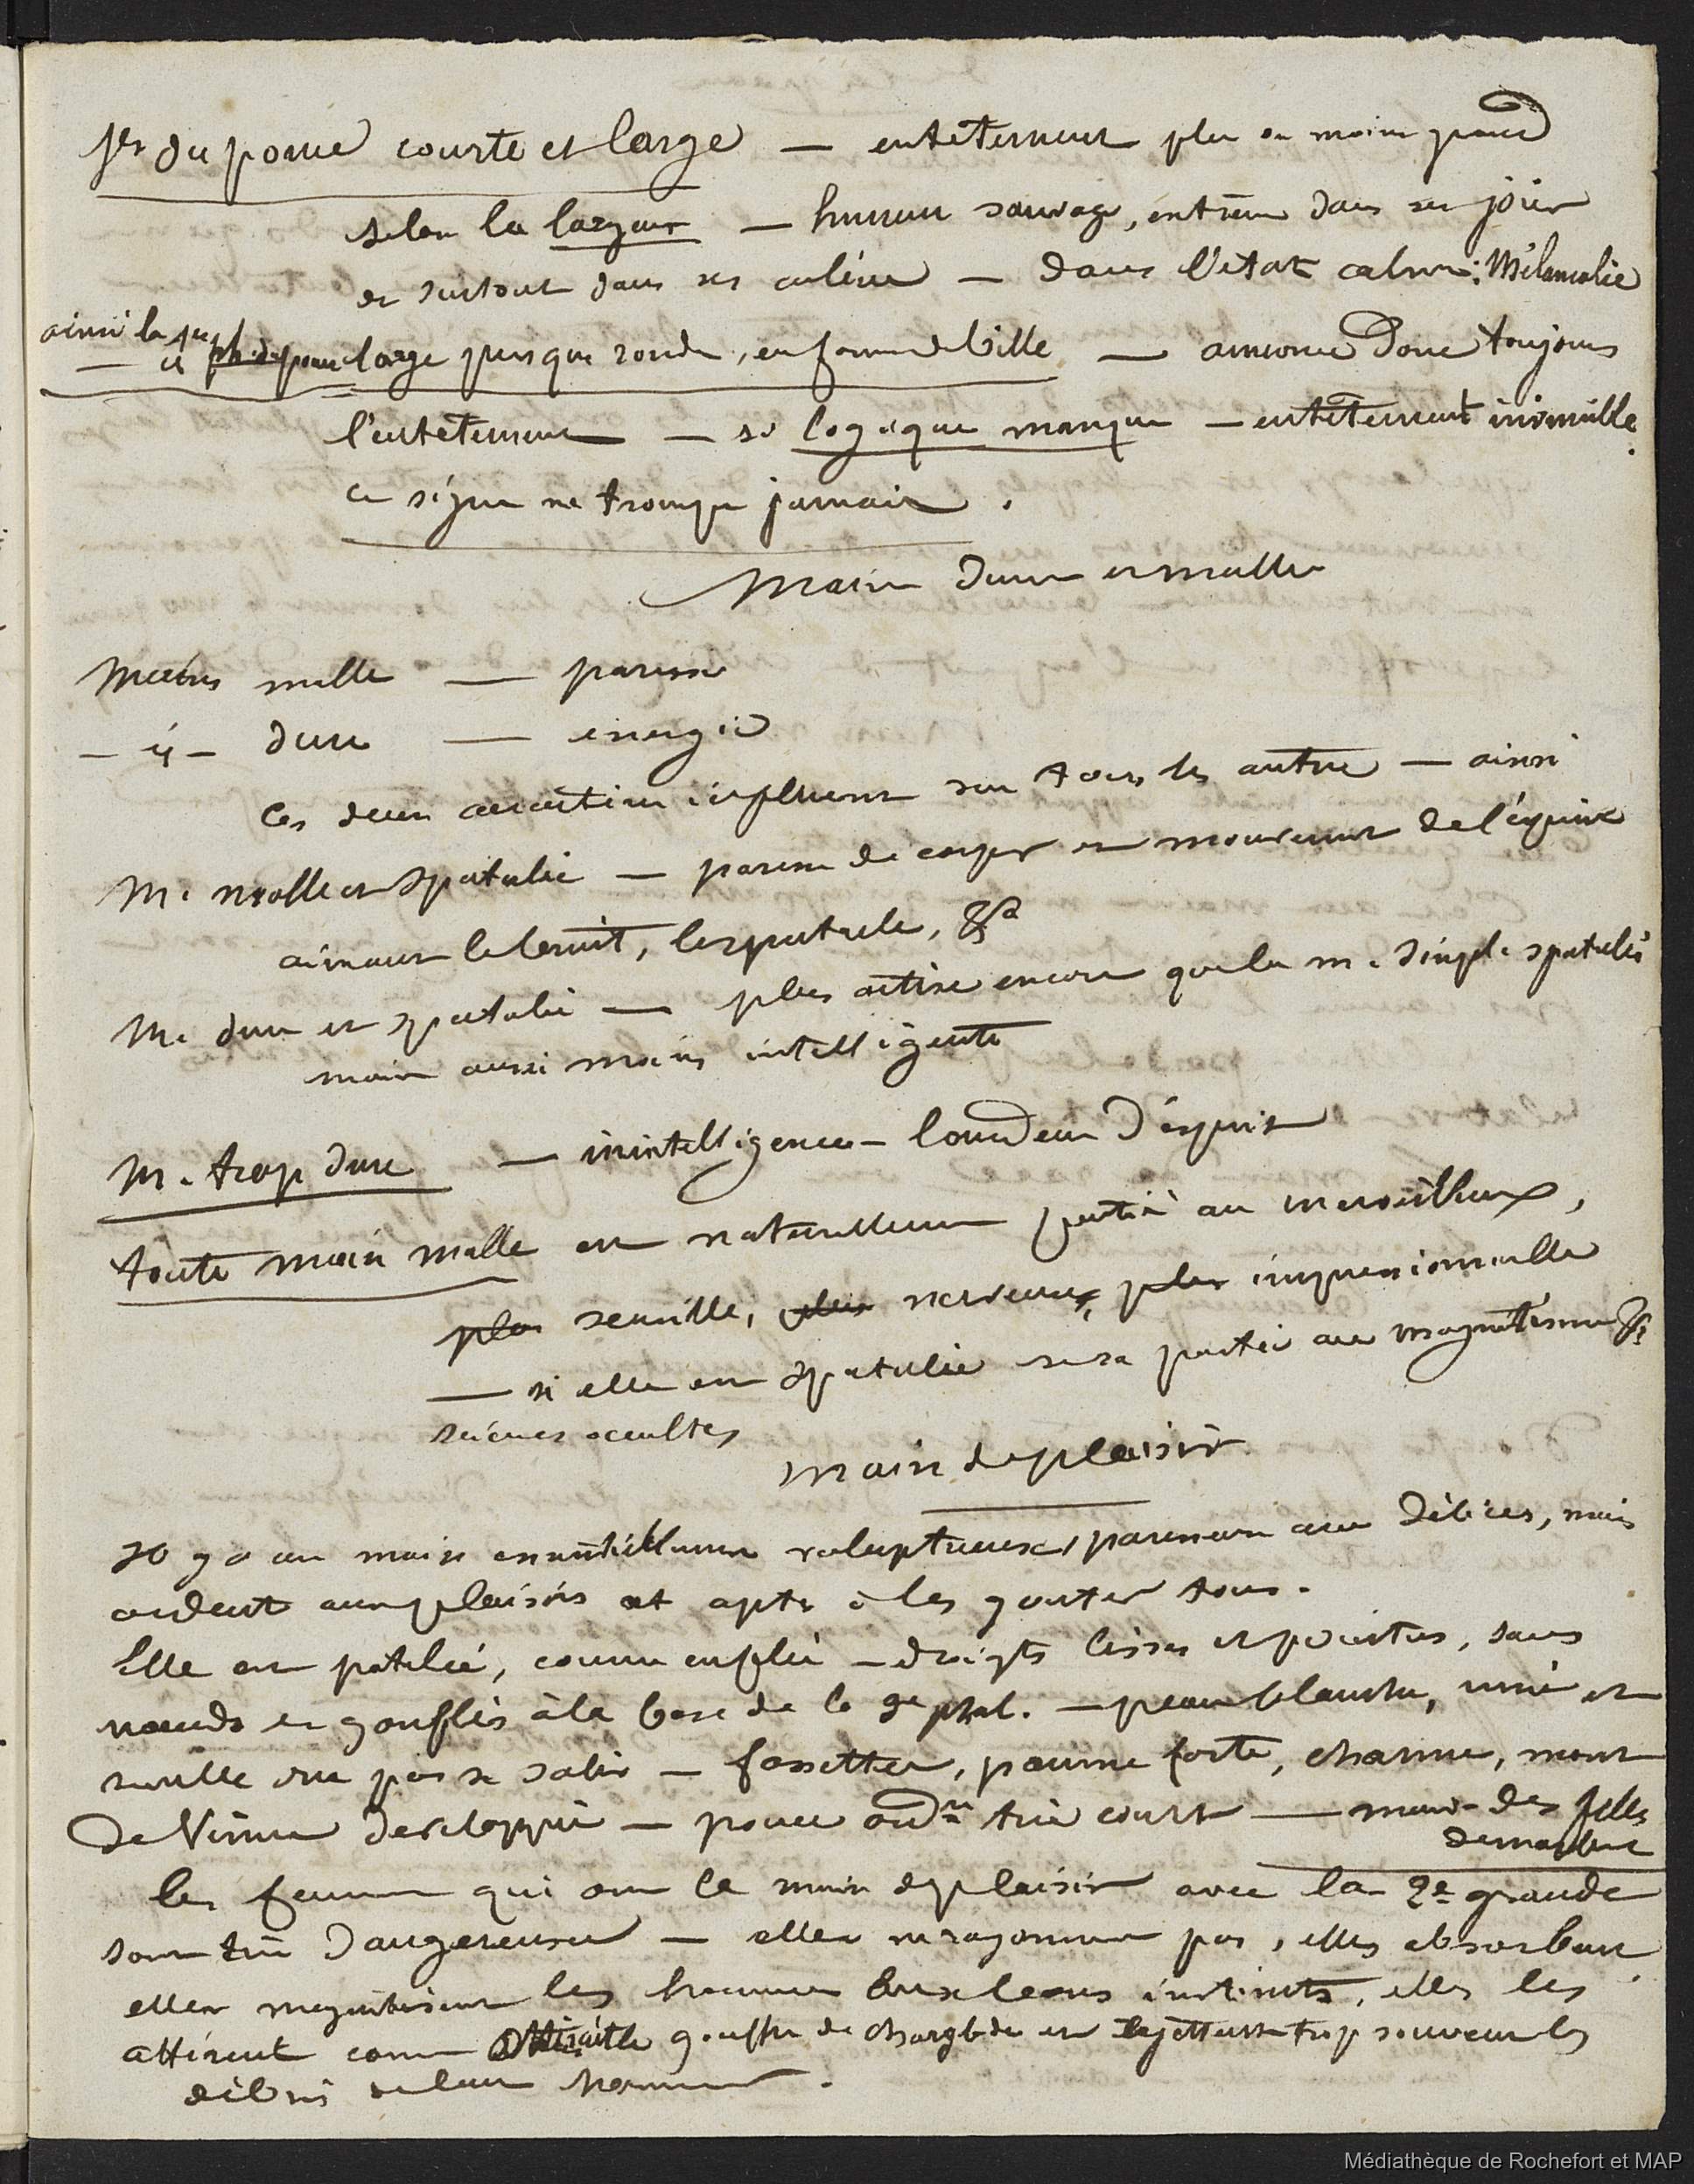 1ere du pouce courte et large — entêtement plus ou moins grand
selon la largeur — humeur sauvage, extrême dans ses joies
et surtout dans ses colères — dans l'état calme : Mélancolie
ainsi la 1re
— id ph. du pouce large presque ronde, en forme de bille — annonce donc toujours
l'entêtement — si logique manque — entêtement invincible.
ce signe ne trompe jamais.
Mains dures et molles
Mains molles — paresse
— id — dure — énergie
Ces deux caractères influent sur tous les autres — ainsi
M. molle et spatulée — paresse de corps et mouvement de l'esprit
aimant le bruit, les spectacle, &a
M. dure et spatulée — plus active encore que la m. simpl. spatulée
mais aussi moins intelligente
M. trop dure — inintelligence — lourdeur d'esprit
toute main molle est naturellement portée au merveilleux,
plus sensible, plus nerveuse, plus impressionnable
— si elle est spatulée sera portée au magnétisme &a
sciences occultes
Main de plaisir
Il y a une main essentiellement voluptueuse, paresseuse avec délices, mais
ardente aux plaisirs et apte à les goûter tous.
Elle est potelée, comme enflée — doigts lisses et pointus, sans
nœuds et gonflés à la base de la 3e phal. — peau blanche, unie et
semble ne pas se salir — fossettes, paume forte, charnue, mont
de Vénus développé — pouce ordre très court — main des filles
de marbre
les femmes qui ont la main de plaisir avec la 2e grande
sont très dangereuses — elles ne raisonnent pas, elles absorbent.
elles magnétisent les hommes dans leurs instincts, elles les
attirent comme attirait le gouffre de Charybde et rejettent trop souvent les
débris de leur honneur.